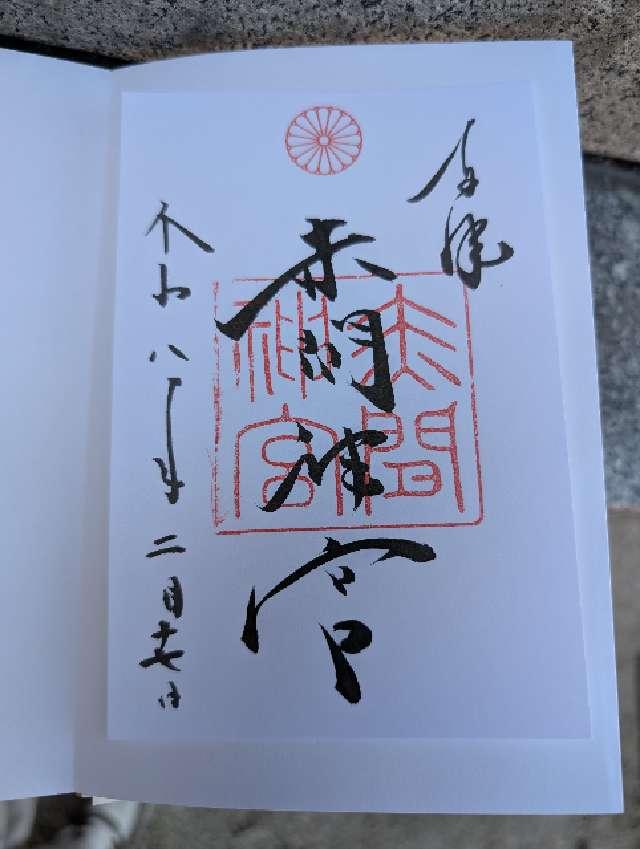 奉拝
赤間神宮
赤間
神宮
令和八年二月十七日